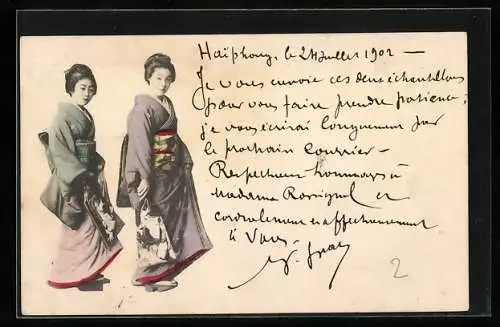 Haïphong, le 24 Juillet 1902 —
Je vous envoie ces deux échantillons
pour vous faire prendre patience;
je vous écrirai longuement par
le prochain courrier —
Respectueux hommages à
Madame et
cordialement et affectueusement
à Vous.
2